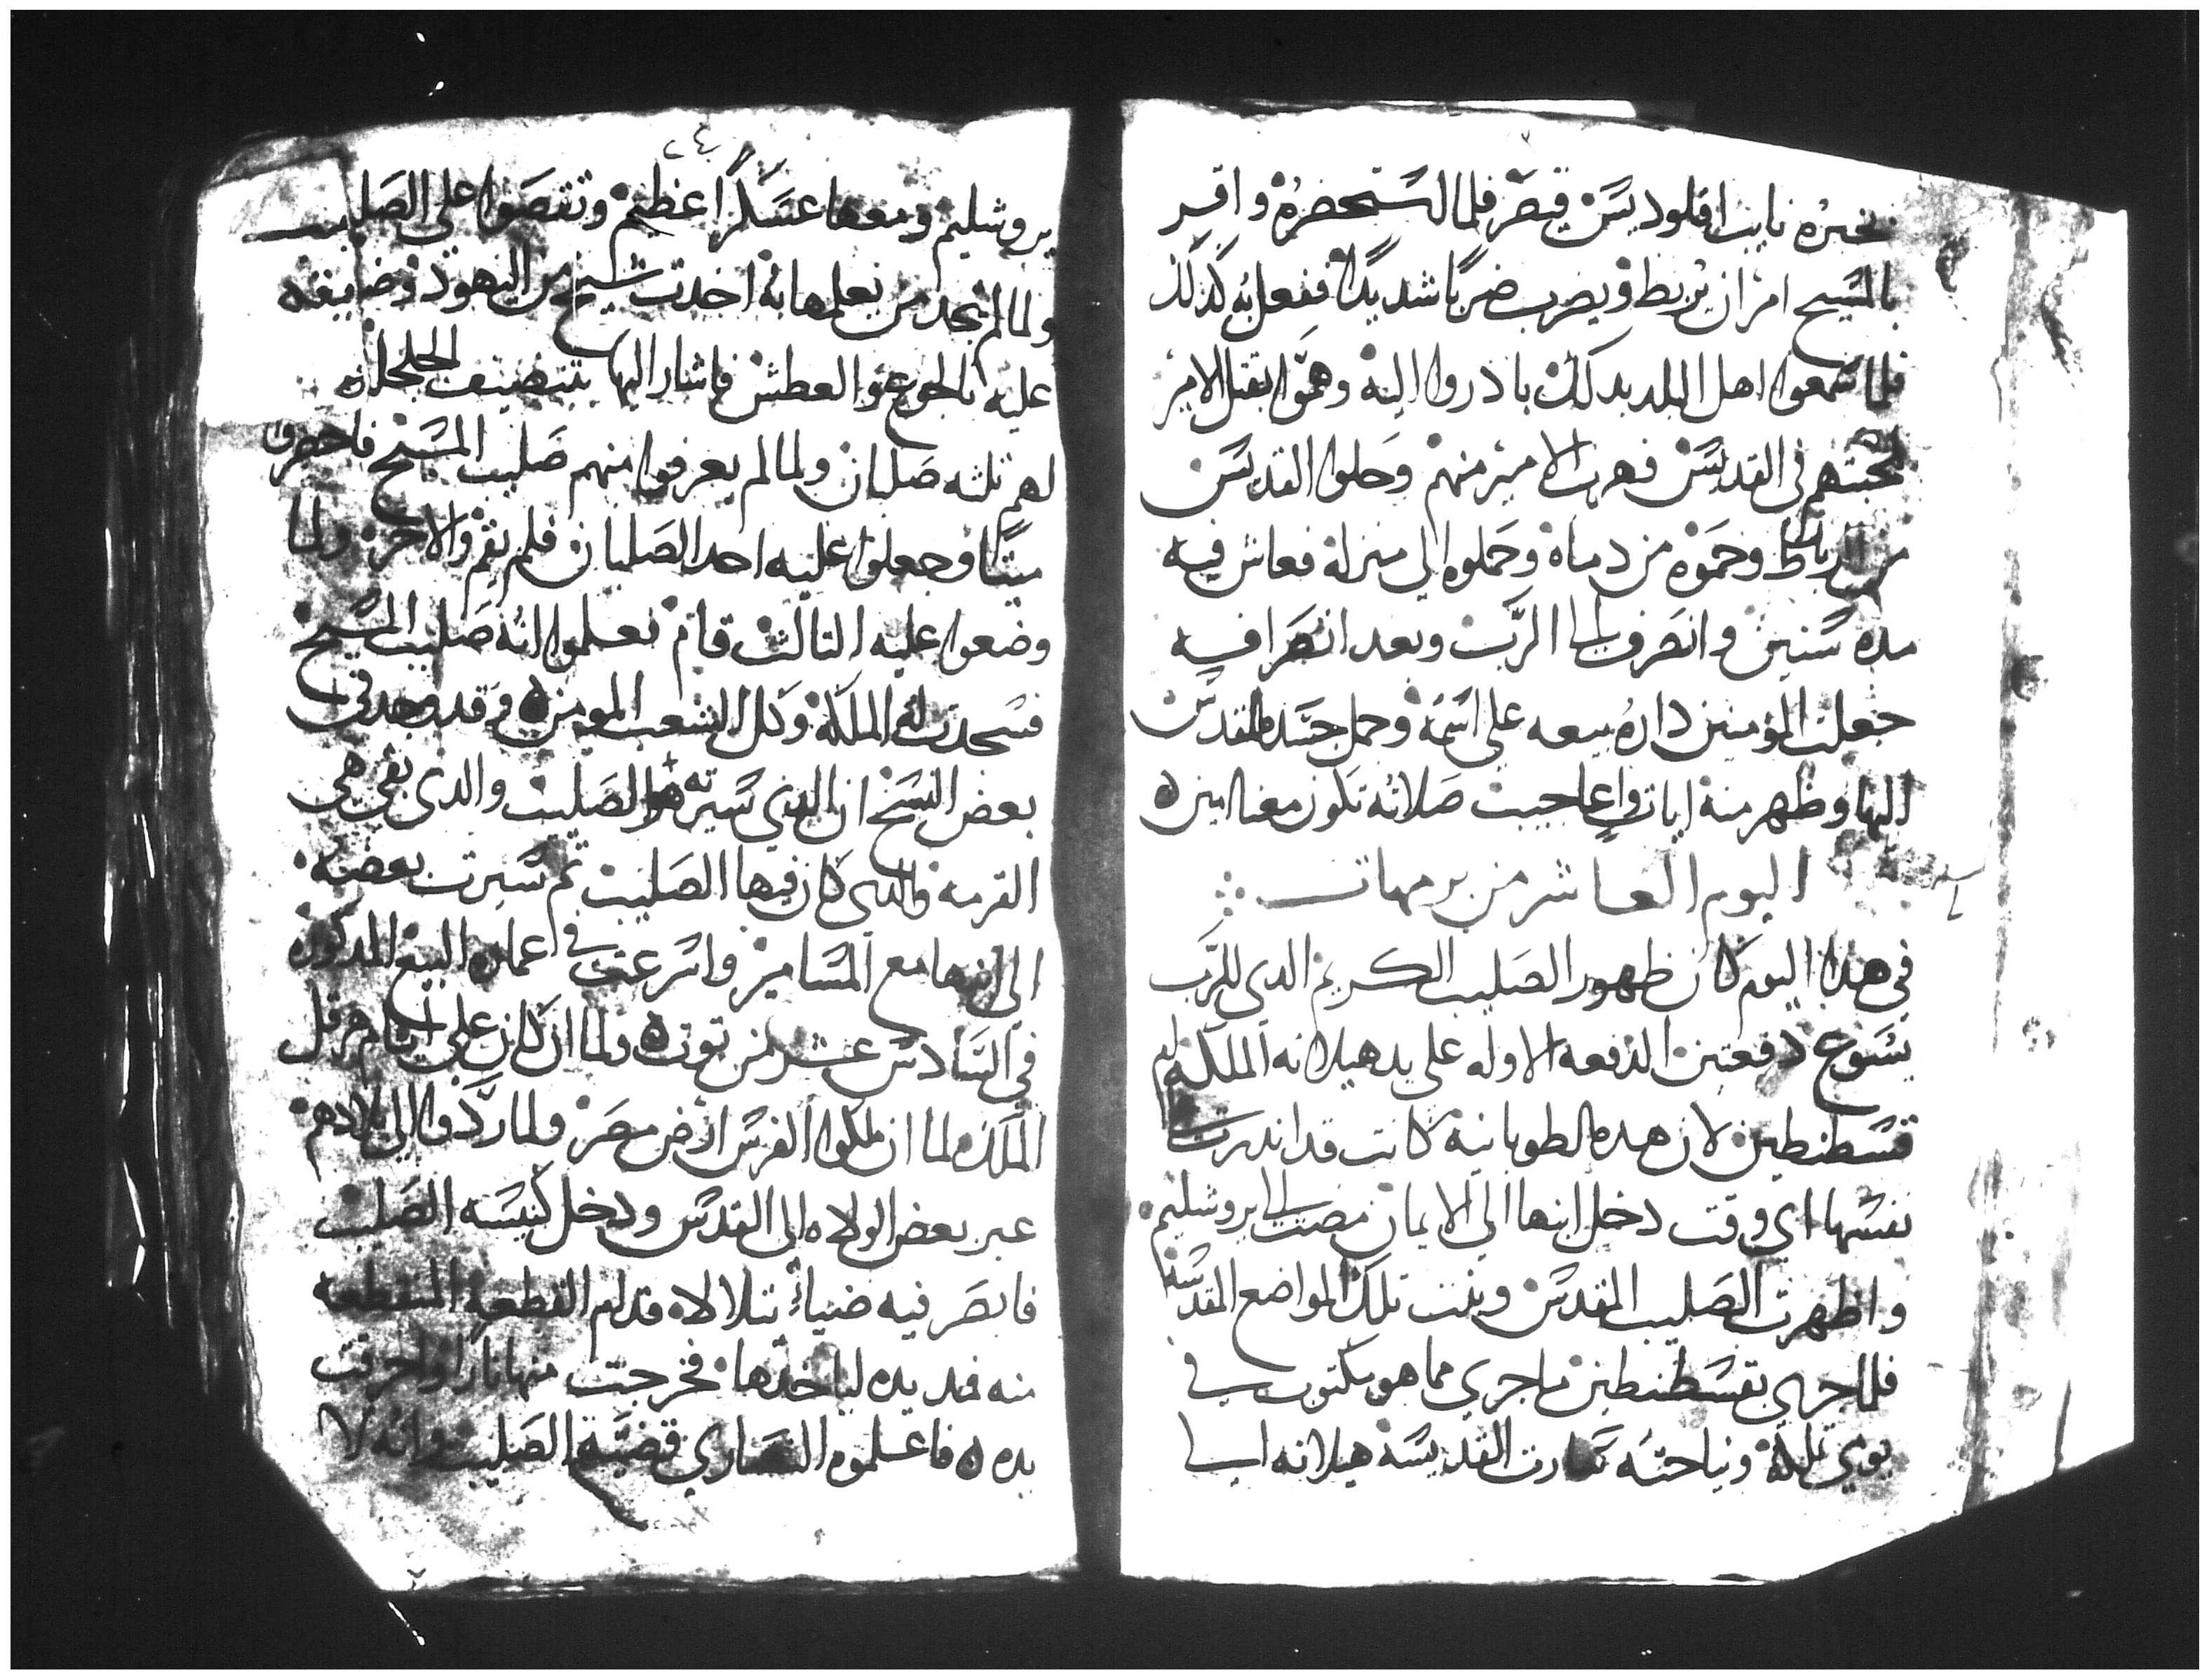 بخبره نايب اقلوديس قيصر فلما استحضره واقر
بالمسيح امر ان يربط ويضرب ضربًا شديدًا ففعل به كذلك
فلما سمعوا اهل البلد بدلك بادروا اليه وهموا بقتل الامير
لمحبتهم في القديس فهرب الامير منهم وحلوا القديس
من الرباط وحموه من دماه وحملوه الى منزله فعاش فيه
مده سنين وانصرف الى الرب وبعد انصرافه
جعلت المؤمنين داره بيعه على اسمه وحمل جسده المقدس
اليها وظهر منه ايات واعاجيب صلاته تكون معنا امين
اليوم العاشر من برمهات
في هدا اليوم كان ظهور الصليب الكريم الدي للرب
يسوع دفعتين الدفعه الاوله على يد هيلانه الملكه ام
قسطنطين لان هده الطوبانيه كانت قد اندرت في
نفسها اي وقت دخل ابنها الى الايمان مضت الى يروشليم
واظهرت الصليب المقدس وبنت تلك المواضع المقدسه
فلما جري بقسطنطين ما جري مما هو مكتوب في
يوم تملكه ونياحته سارت القديسه هيلانه الى
٢٤
يروشليم ومعها عسكرًا عظيم وتقصوا على الصليب
ولما لم تجد من يعلمها به اخدت شيخ من اليهود وضيقه
عليه بالجوع والعطش فاشار اليها بتنضيف الجلجلة
لهم ثلثه صلبان ولما لم يعرفوا منهم صليب المسيح فاحضروا
ميتًا وجعلوا عليه احد الصلبان فلم يقم والاخر ولما
وضعوا عليه التالت قام فعلموا انه صليب المسيح
فسجدت له الملكه وكل الشعب المومن وقد وجد في
بعض النسخ ان الدي سيرته هو الصليب والدي بقي هي
القرمه والدي كان فيها الصليب تم سيرت بعضه
الى ابنها مع المسامير واسرعت في اعماره البيع المدكوره
في السادس عشر من توت ولما ان كان على ايام هرقل
الملك لما ان ملكوا الفرس ارض مصر ولما ردوا الى بلادهم
عبر بعض الولاه الى القدس ودخل كنيسه الصليب
فابصر فيه ضياءً تتلالا قدام القطعه المنقطعه
منه فمد يده لياخدها فخرجت منها نارا واحرقت
يده فاعلموه النصاري قضية الصليب وانه لا